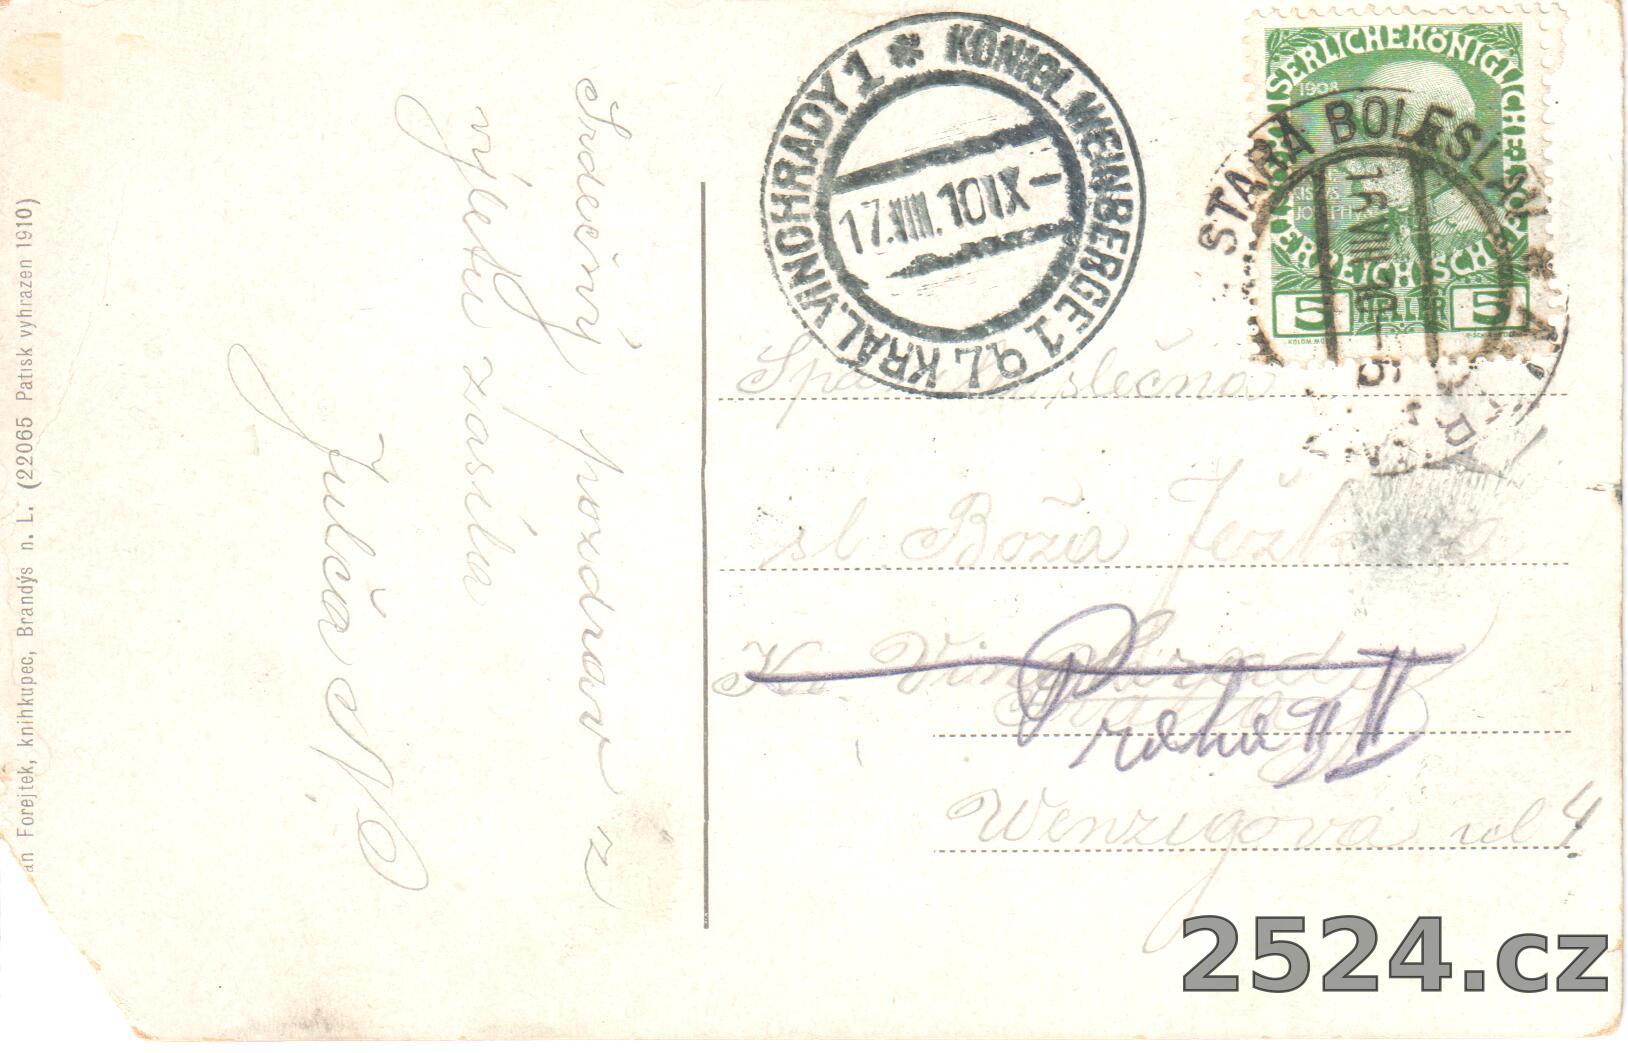 an Forejtek, knihkupec, Brandýs n. L. (22065 Patisk vyhrazen 1910)
Srdečný pozdrav z
výletu zasíla
Julča N
KÖNIGL. WEINBERGE 1
KRÁL. VINOHRADY 1
17.VIII.10 IX-
STARÁ BOLESLAV
KAISERLICHE KÖNIGLICHE
1908
ÖSTERREICHISCHE
5 HELLER 5
slečna
sl Boža
Kr. Vinohrady
Praha II
Wenzigova ul 4
2524.cz